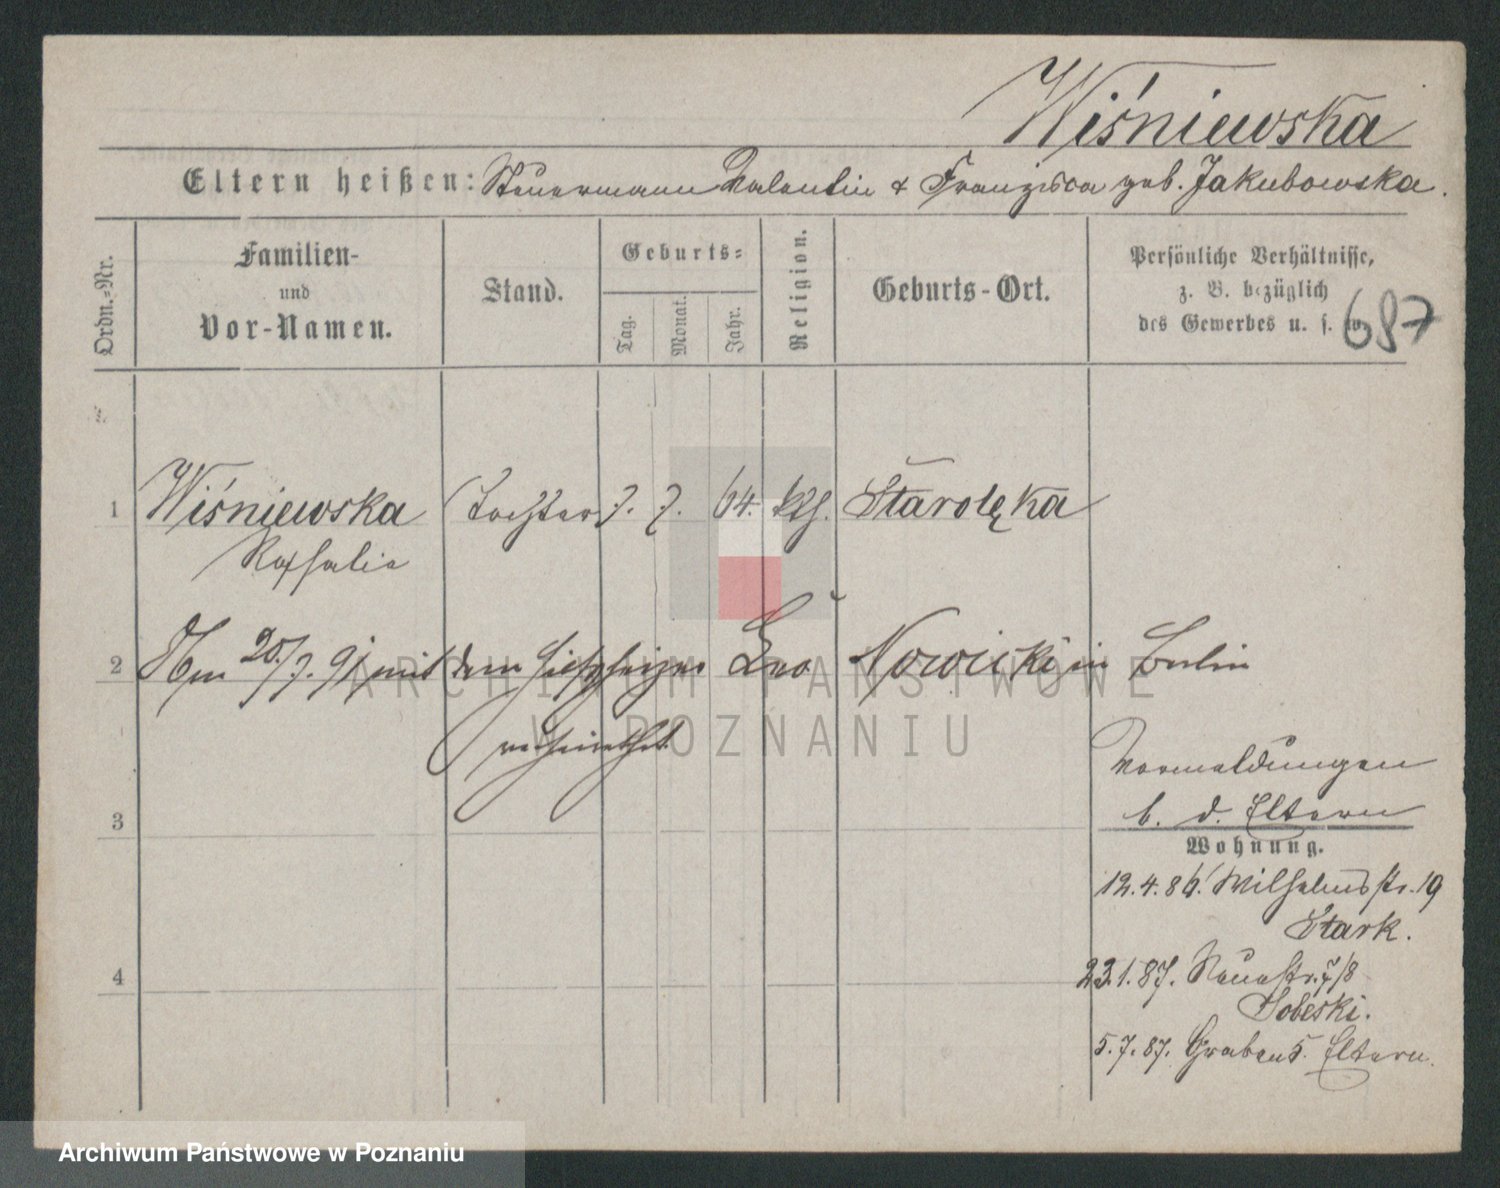 Wiśniewska
Eltern heißen: Steuermann Valentin & Franziska geb. Jakubowska.
Ordn.-Nr.
Familien- und Vor-Namen.
Stand.
Geburts-
Tag.
Monat.
Jahr.
Religion.
Geburts-Ort.
Persönliche Verhältnisse,
z. B. bezüglich
des Gewerbes u. s. w.
687
1 Wiśniewska Tochter 7. 7. 64. kth. Starolęka
2 Am 25/7. 91 mit dem Leo Nowicki in Berlin
verheirathet
Vormeldungen
b. d. Eltern
3
Wohnung.
12.4.86. Wilhelmstr. 19
Stark.
4
23.1.87. Neuestr. 7/8
Sobeski.
5.7.87. Graben 5. Eltern.
ARCHIWUM PAŃSTWOWE
W POZNANIU
Archiwum Państwowe w Poznaniu